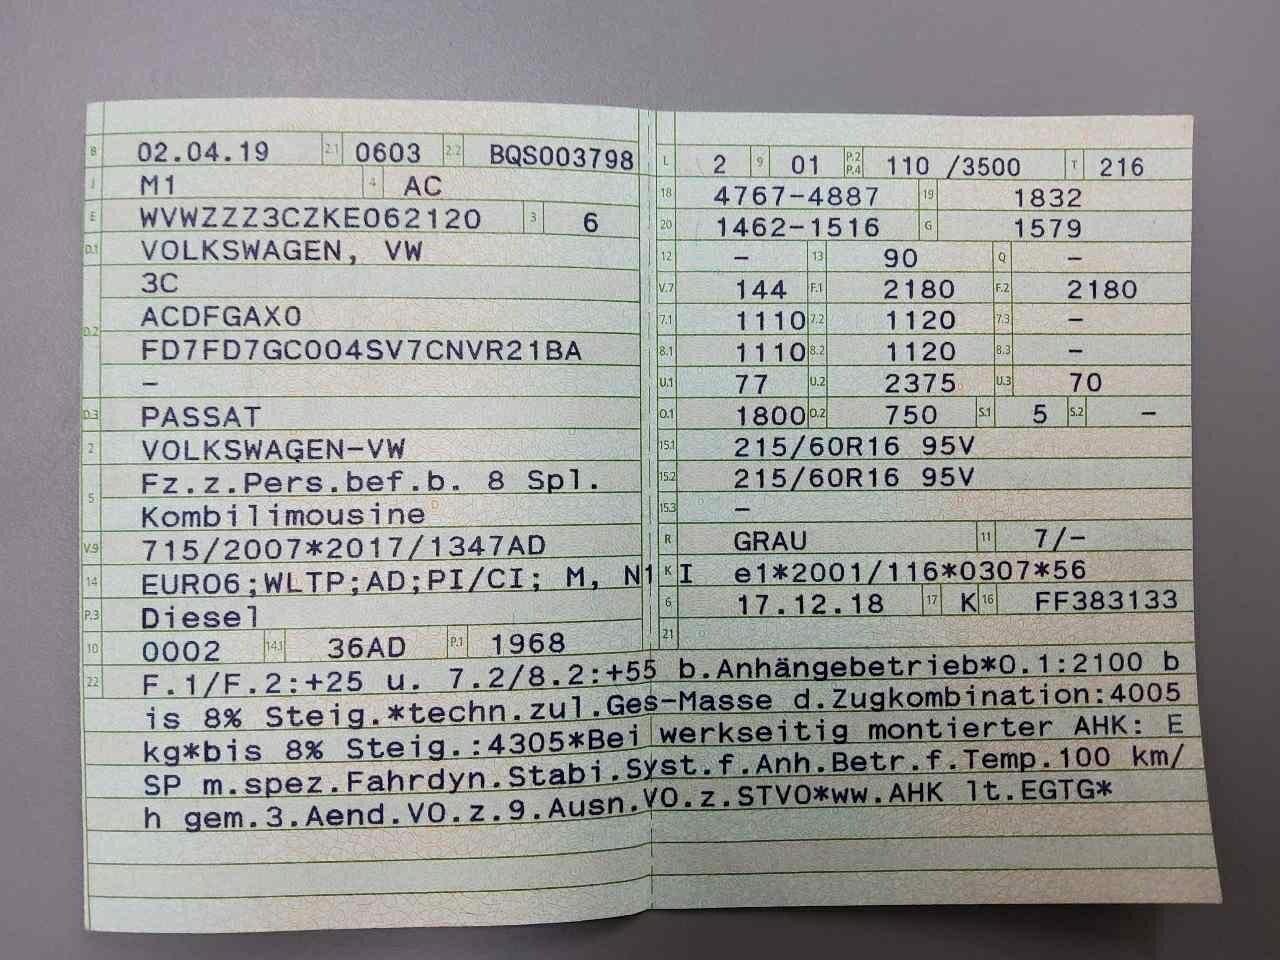 B 02.04.19 2.1 0603 2.2 BQS003798
J M1 4 AC
E WVWZZZ3CZKE062120 3 6
D.1 VOLKSWAGEN, VW
3C
D.2 ACDFGAX0
FD7FD7GC004SV7CNVR21BA
–
D.3 PASSAT
2 VOLKSWAGEN-VW
5 Fz.z.Pers.bef.b. 8 Spl.
Kombilimousine
V.9 715/2007*2017/1347AD
14 EURO6;WLTP;AD;PI/CI; M, N1 I
P.3 Diesel
10 0002 14.1 36AD P.1 1968
L 2 9 01 P.2 P.4 110 /3500 T 216
18 4767-4887 19 1832
20 1462-1516 G 1579
12 – 13 90 Q –
V.7 144 F.1 2180 F.2 2180
7.1 1110 7.2 1120 7.3 –
8.1 1110 8.2 1120 8.3 –
U.1 77 U.2 2375 U.3 70
O.1 1800 O.2 750 S.1 5 S.2 –
15.1 215/60R16 95V
15.2 215/60R16 95V
15.3 –
R GRAU 11 7/–
K e1*2001/116*0307*56
6 17.12.18 17 K 16 FF383133
21
22 F.1/F.2:+25 u. 7.2/8.2:+55 b.Anhängebetrieb*O.1:2100 b
is 8% Steig.*techn.zul.Ges-Masse d.Zugkombination:4005
kg*bis 8% Steig.:4305*Bei werkseitig montierter AHK: E
SP m.spez.Fahrdyn.Stabi.Syst.f.Anh.Betr.f.Temp.100 km/
h gem.3.Aend.VO.z.9.Ausn.VO.z.STVO*ww.AHK lt.EGTG*